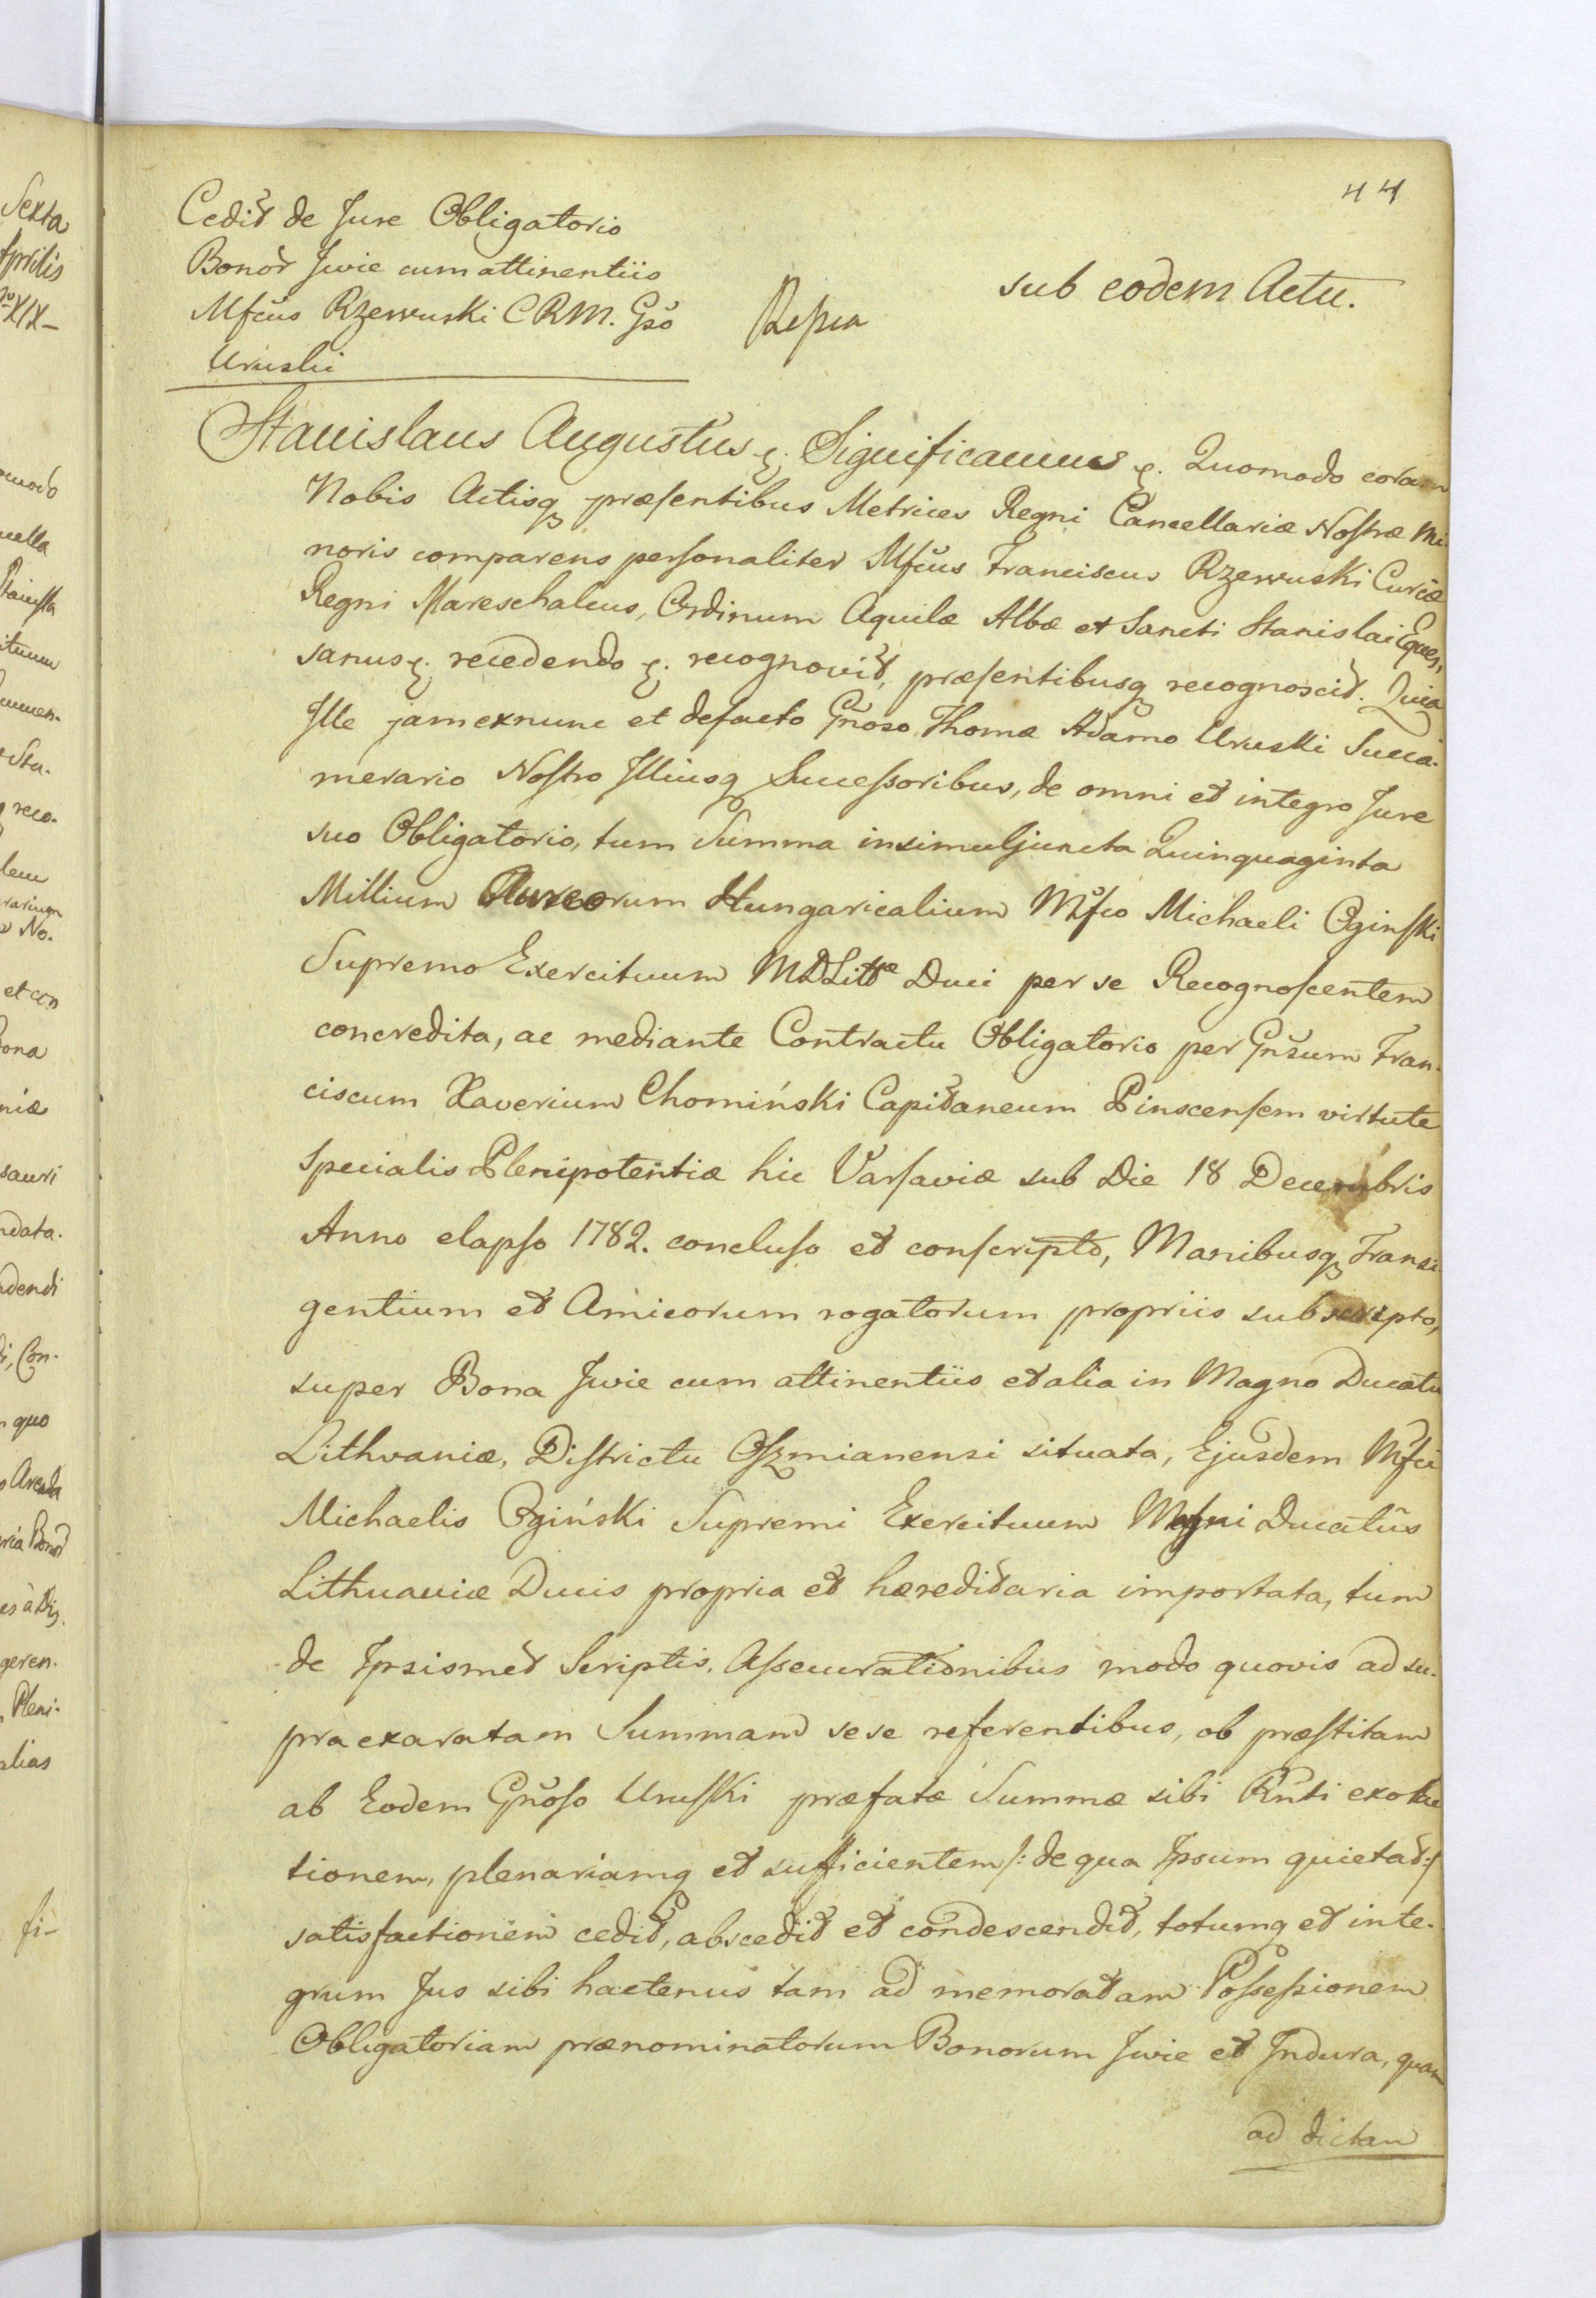 44
Cedit de Jure Obligatorio
Bonor Jwie cum attinentiis
Mfcus Rzewuski CRM. Gso
Uruski
sub eodem Actu.
Stanislaus Augustus &. Significamus &. Quomodo coram
Nobis Actisq præsentibus Metrices Regni Cancellariæ Nostræ Mi
noris comparens personaliter Mfcus Franciscus Rzewuski Curiæ
Regni Mareschalcus, Ordinum Aquilæ Albæ et Sancti Stanislai Eques,
sanus &. recedendo &. recognovit, præsentibusq recognoscit. Quia
Ille jam exnunc et defacto Gnoso Thomæ Adamo Uruski Succa-
merario Nostro Illiusq Successoribus, de omni et integro Jure
suo Obligatorio, tum Summa insimul juncta Quinquaginta
Millium Aureorum Hungaricalium Mfco Michaeli Oginski
Supremo Exercituum MDLittæ Duci per se Recognoscentem
concredita, ac mediante Contractu Obligatorio per Gnsum Fran-
ciscum Xaverium Chomiński Capitaneum Pinscensem virtute
specialis Plenipotentiæ hic Varsaviæ sub Die 18 Decembris
Anno elapso 1782. concluso et conscripto, Manibusq Transi
gentium et Amicorum rogatorum propriis subscripto,
super Bona Jwie cum attinentiis et alia in Magno Ducatu
Lithvaniæ, Districtu Oszmianensi situata, Ejusdem Mfci
Michaelis Ogiński Supremi Exercituum Magni Ducatûs
Lithuaniæ Ducis propria et hæreditaria importata, tum
de Ipsismet Scriptis, Assecurationibus modo quovis ad su-
pra exaratam Summam sese referentibus, ob præstitam
ab Eodem Gnoso Uruski præfatæ Summæ sibi Rnti exolu
tionem, plenariamq et sufficientem /: de qua Ipsum quietat :/
satisfactionem cedit, abscedit et condescendit, totumq et inte-
grum Jus sibi hactenus tam ad memoratam Possessionem
Obligatoriam prænominatorum Bonorum Jwie et Indura, quam
ad dictam